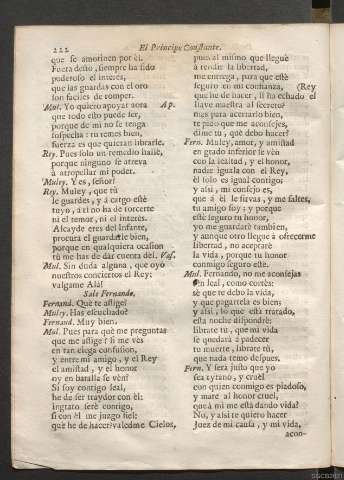 222
El Principe Constante.
que se amotinen por èl.
Fuera desto, siempre ha sido
poderoso el interès,
que las guardas con el oro
son faciles de romper.
Mul. Yo quiero apoyar aora Ap.
que todo esto puede ser,
porque de mi no se tenga
sospecha: tu temes bien,
fuerza es que quieran librarle.
Rey. Pues solo un remedio hallè,
porque ninguno se atreva
à atropellar mi poder.
Muley. Y es, señor?
Rey. Muley, que tù
le guardes, y à cargo estè
tuyo, à ti no ha de torcerte
ni el temor, ni el interès.
Alcayde eres del Infante,
procura el guardarle bien,
porque en qualquiera ocasion
tù me has de dar cuenta dèl. Vas.
Mul. Sin duda alguna, que oyò
nuestros conciertos el Rey:
valgame Alà!
Sale Fernando.
Fernand. Què te aflige?
Muley. Has escuchado?
Fernand. Muy bien.
Mul. Pues para què me preguntas
que me aflige? si me vès
en tan ciega confusion,
y entre mi amigo, y el Rey
el amistad, y el honor
oy en batalla se vèn?
Si soy contigo leal,
he de ser traydor con èl:
ingrato serè contigo,
si con èl me juzgo fiel:
què he de hacer (valedme Cielos,
pues al mismo que lleguè
à rendir la libertad,
me entrega, para que estè
seguro en mi confianza, (Rey
què he de hacer, si ha echado el
llave maestra al secreto?
mas para acertarlo bien,
te pido que me aconsejes,
dime tù, què debo hacer?
Fern. Muley, amor, y amistad
en grado inferior se vèn
con la lealtad, y el honor,
nadie iguala con el Rey,
èl solo es igual contigo;
y assi, mi consejo es,
que à èl le sirvas, y me faltes,
tu amigo soy; y porque
estè seguro tu honor,
yo me guardarè tambien,
y aunque otro llegue à ofrecerme
libertad, no aceptarè
la vida, porque tu honor
conmigo seguro estè.
Mul. Fernando, no me aconsejas
tan leal, como cortès:
sè que te debo la vida,
y que pagartela es bien;
y assi, lo que està tratado,
esta noche dispondrè:
librate tù, que mi vida
se quedarà à padecer
tu muerte, librate tù,
que nada temo despues.
Fern. Y serà justo que yo
sea tyrano, y cruèl
con quien conmigo es piadoso,
y mate al honor cruel,
que à mi me està dando vida?
No, y assi te quiero hacer
Juez de mi causa, y mi vida,
acon-